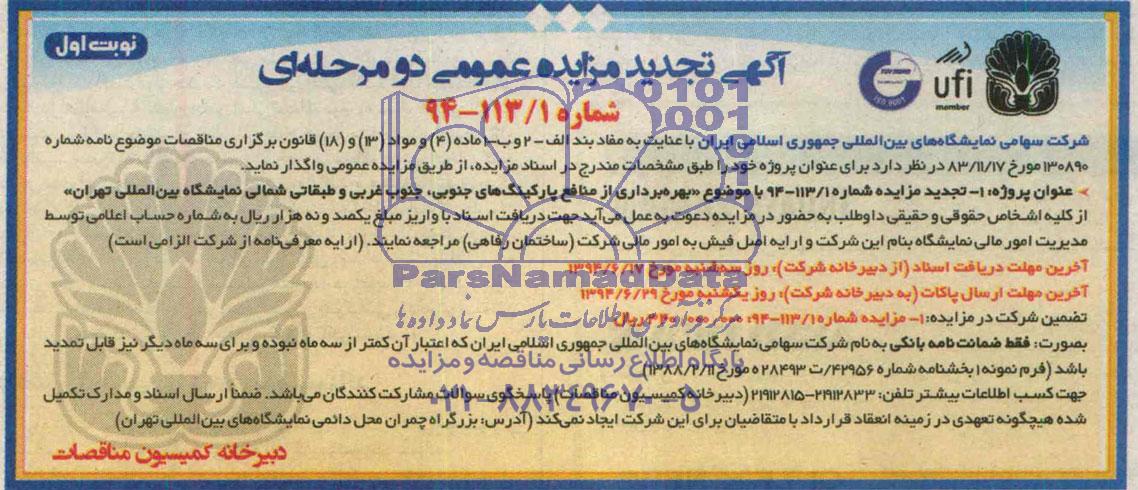 نوبت اول
آگهی تجدید مزایده عمومی دو مرحله‌ای
شماره ۹۴-۱۱۳/۱
ufi
member
ISO 9001
شرکت سهامی نمایشگاه‌های بین‌المللی جمهوری اسلامی ایران با عنایت به مفاد بند الف-۲ و ب-۱ ماده (۴) و مواد (۱۳) و (۱۸) قانون برگزاری مناقصات موضوع نامه شماره
۱۳۰۸۹۰ مورخ ۸۳/۱۱/۱۷ در نظر دارد برای عنوان پروژه خود را طبق مشخصات مندرج در اسناد مزایده، از طریق مزایده عمومی واگذار نماید.
عنوان پروژه: ۱- تجدید مزایده شماره ۹۴-۱۱۳/۱ با موضوع «بهره‌برداری از منافع پارکینگ‌های جنوبی، جنوب غربی و طبقاتی شمالی نمایشگاه بین‌المللی تهران»
از کلیه اشخاص حقوقی و حقیقی داوطلب به حضور در مزایده دعوت به عمل می‌آید جهت دریافت اسناد با واریز مبلغ یکصد و نه هزار ریال به شماره حساب اعلامی توسط
مدیریت امور مالی نمایشگاه بنام این شرکت و ارایه اصل فیش به امور مالی شرکت (ساختمان رفاهی) مراجعه نمایند. (ارایه معرفی‌نامه از شرکت الزامی است)
آخرین مهلت دریافت اسناد (از دبیرخانه شرکت): روز سه‌شنبه مورخ ۱۳۹۴/۶/۱۷
آخرین مهلت ارسال پاکات (به دبیرخانه شرکت): روز یکشنبه مورخ ۱۳۹۴/۶/۲۹
تضمین شرکت در مزایده: ۱- مزایده شماره ۹۴-۱۱۳/۱: ریال
بصورت: فقط ضمانت نامه بانکی به نام شرکت سهامی نمایشگاه‌های بین المللی جمهوری اسلامی ایران که اعتبار آن کمتر از سه ماه نبوده و برای سه ماه دیگر نیز قابل تمدید
باشد (فرم نمونه ۱ بخشنامه شماره ۴۲۹۵۶/ت ۲۸۴۹۳ ه مورخ ۱۳۸۸/۲/۱۱)
جهت کسب اطلاعات بیشتر تلفن: ۲۱۹۱۲۸۱۵-۲۹۱۲۸۳۳ (دبیرخانه کمیسیون مناقصات) پاسخگوی سوالات مشارکت کنندگان می‌باشد. ضمناً ارسال اسناد و مدارک تکمیل
شده هیچگونه تعهدی در زمینه انعقاد قرارداد با متقاضیان برای این شرکت ایجاد نمی‌کند (آدرس: بزرگراه چمران محل دائمی نمایشگاه‌های بین‌المللی تهران)
دبیرخانه کمیسیون مناقصات
ParsNamadData
مرکز فرآوری اطلاعات پارس نماد داده ها
پایگاه اطلاع رسانی مناقصه و مزایده
۰۲۱-۸۸۳۴۹۶۷۰-۵